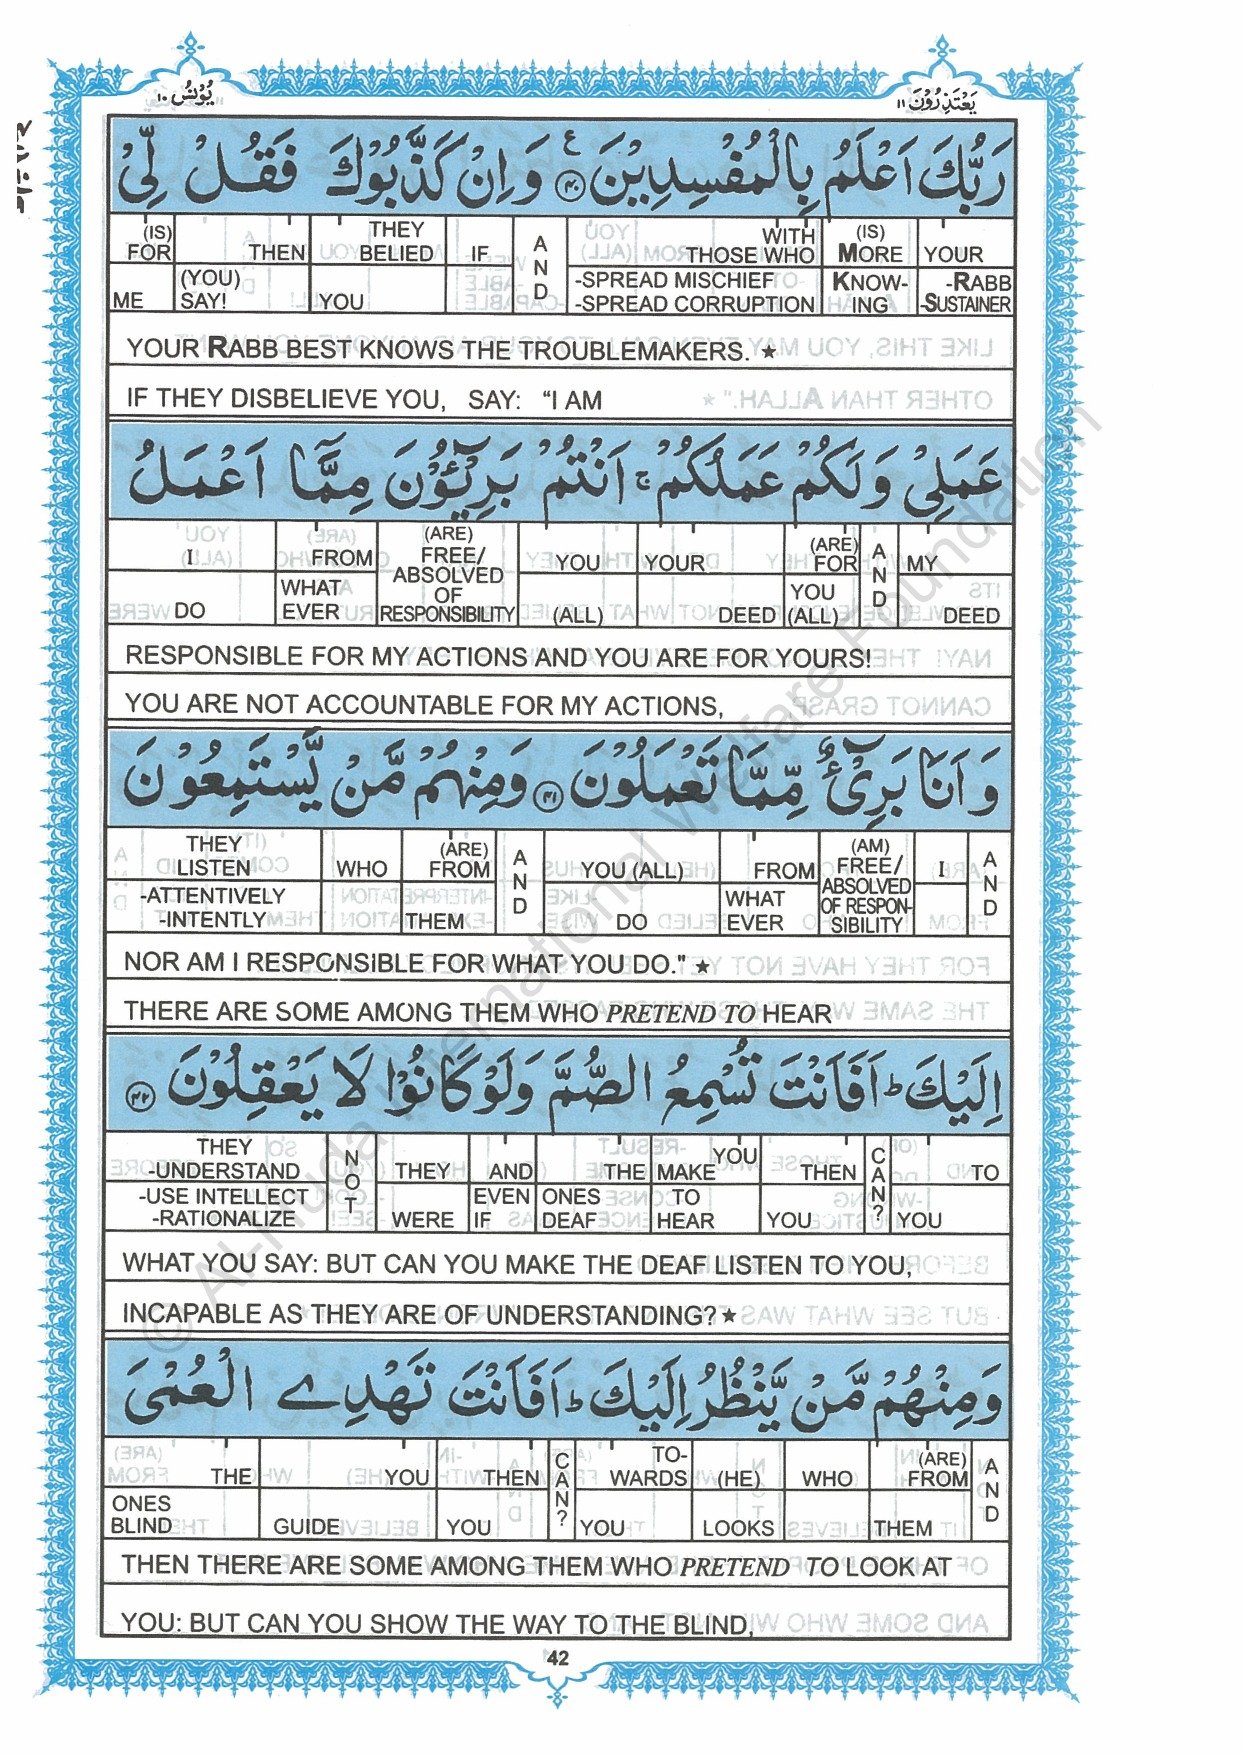 یونس ١٠
یعتذرون ١١
رَبُّكَ اَعْلَمُ بِالْمُفْسِدِيْنَ ۴۰ ع وَاِنْ كَذَّبُوْكَ فَقُلْ لِّیْ
(IS) FOR ME | THEN (YOU) SAY! | THEY BELIED YOU | IF | AND | WITH THOSE WHO -SPREAD MISCHIEF -SPREAD CORRUPTION | (IS) MORE KNOW-ING | YOUR -RABB -SUSTAINER
YOUR RABB BEST KNOWS THE TROUBLEMAKERS. ★
IF THEY DISBELIEVE YOU, SAY: “I AM
عَمَلِیْ وَلَكُمْ عَمَلُكُمْ ۚ اَنْتُمْ بَرِیْٓـُٔوْنَ مِمَّاۤ اَعْمَلُ
I DO | FROM WHAT EVER | (ARE) FREE/ ABSOLVED OF RESPONSIBILITY | YOU (ALL) | YOUR DEED | (ARE) FOR YOU (ALL) | AND | MY DEED
RESPONSIBLE FOR MY ACTIONS AND YOU ARE FOR YOURS!
YOU ARE NOT ACCOUNTABLE FOR MY ACTIONS,
وَاَنَا بَرِیْٓءٌ مِّمَّا تَعْمَلُوْنَ ۴۱ وَمِنْهُمْ مَّنْ یَّسْتَمِعُوْنَ
THEY LISTEN -ATTENTIVELY -INTENTLY | WHO | (ARE) FROM THEM | AND | YOU (ALL) DO | FROM WHAT EVER | (AM) FREE/ ABSOLVED OF RESPON-SIBILITY | I | AND
NOR AM I RESPONSIBLE FOR WHAT YOU DO." ★
THERE ARE SOME AMONG THEM WHO PRETEND TO HEAR
اِلَیْكَ ؕ اَفَاَنْتَ تُسْمِعُ الصُّمَّ وَلَوْ كَانُوْا لَا یَعْقِلُوْنَ ۴۲
THEY -UNDERSTAND -USE INTELLECT -RATIONALIZE | NOT | THEY WERE | AND EVEN IF | THE ONES DEAF | YOU MAKE TO HEAR | THEN YOU | CAN? | TO YOU
WHAT YOU SAY: BUT CAN YOU MAKE THE DEAF LISTEN TO YOU,
INCAPABLE AS THEY ARE OF UNDERSTANDING? ★
وَمِنْهُمْ مَّنْ یَّنْظُرُ اِلَیْكَ ؕ اَفَاَنْتَ تَهْدِی الْعُمْیَ
THE ONES BLIND | YOU GUIDE | THEN YOU | CAN? | TO-WARDS YOU | (HE) LOOKS | WHO | (ARE) FROM THEM | AND
THEN THERE ARE SOME AMONG THEM WHO PRETEND TO LOOK AT
YOU: BUT CAN YOU SHOW THE WAY TO THE BLIND,
42
© Al-Huda International Welfare Foundation